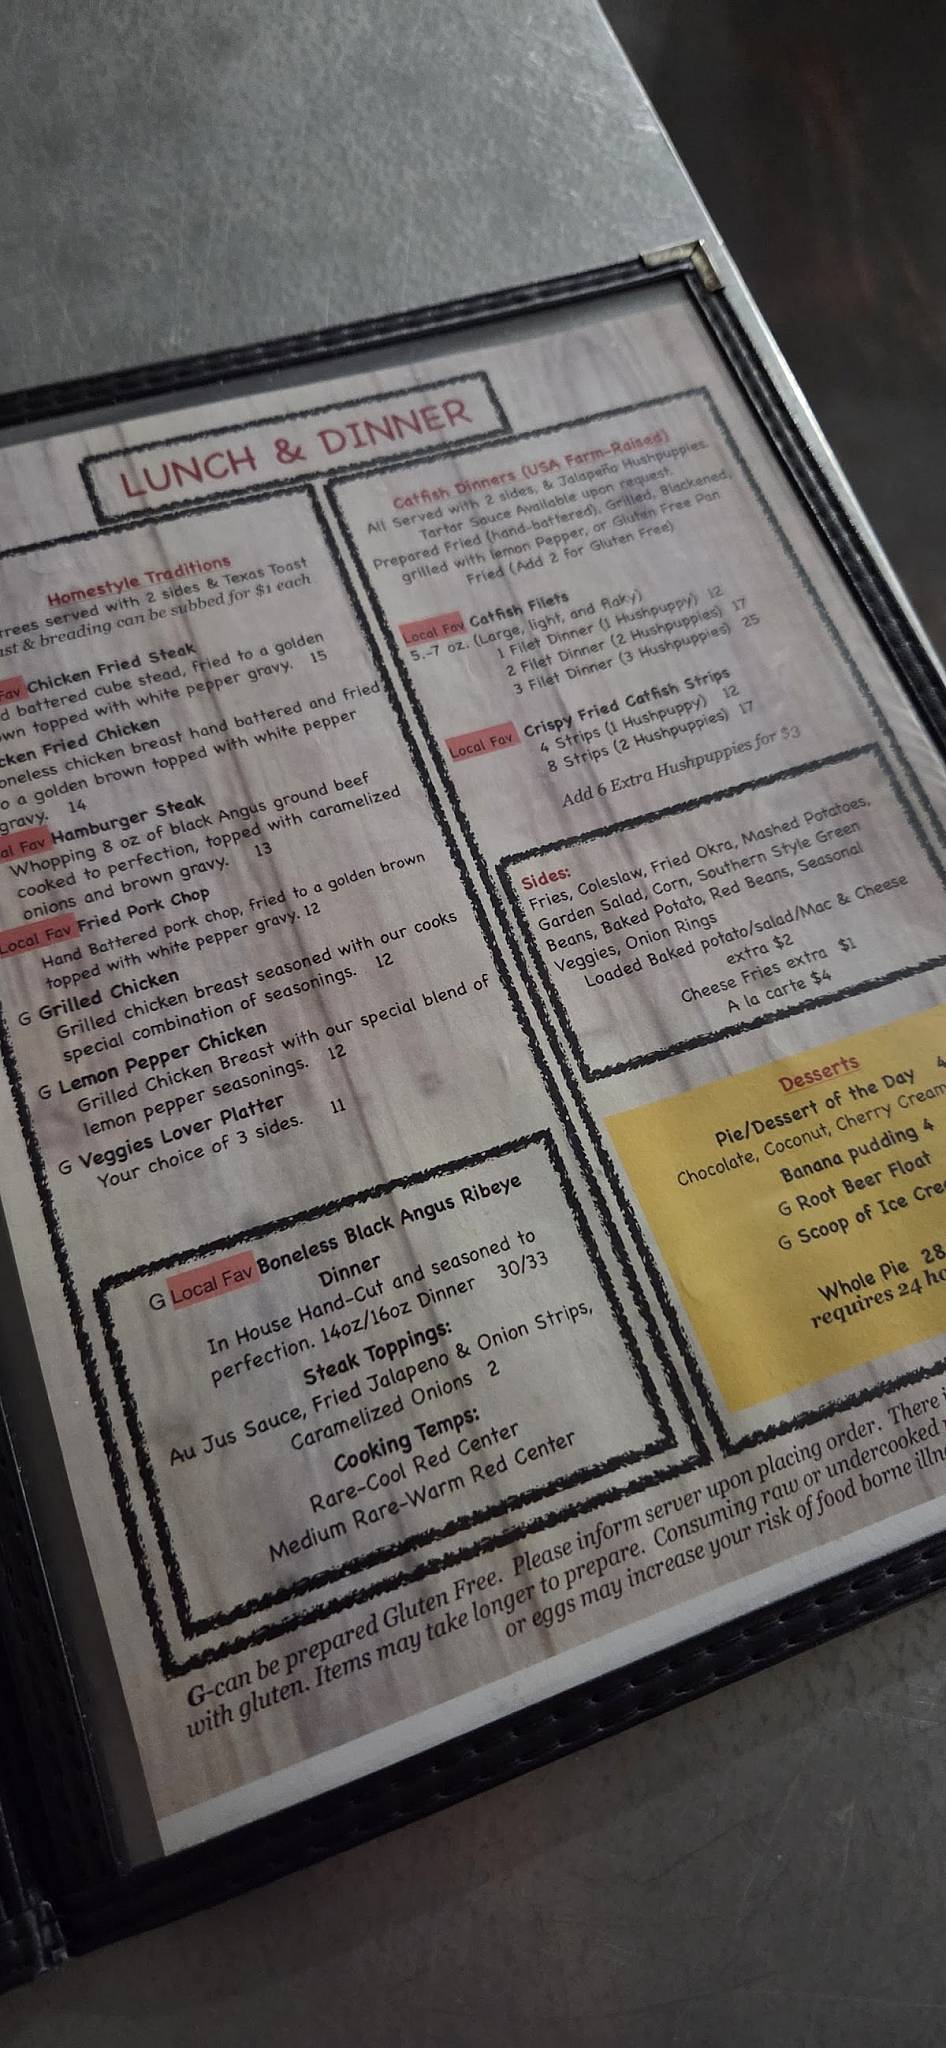 LUNCH & DINNER
Homestyle Traditions
served with 2 sides & Texas Toast
& breading can be subbed for $1 each
Fav Chicken Fried Steak
battered cube stead, fried to a golden
topped with white pepper gravy. 15
Fried Chicken
chicken breast hand battered and fried
a golden brown topped with white pepper
gravy. 14
Fav Hamburger Steak
Whopping 8 oz of black Angus ground beef
cooked to perfection, topped with caramelized
onions and brown gravy. 13
Local Fav Fried Pork Chop
Hand Battered pork chop, fried to a golden brown
topped with white pepper gravy. 12
G Grilled Chicken
Grilled chicken breast seasoned with our cooks
special combination of seasonings. 12
G Lemon Pepper Chicken
Grilled Chicken Breast with our special blend of
lemon pepper seasonings. 12
G Veggies Lover Platter
Your choice of 3 sides. 11
G Local Fav Boneless Black Angus Ribeye
Dinner
In House Hand-Cut and seasoned to
perfection. 14oz/16oz Dinner 30/33
Steak Toppings:
Au Jus Sauce, Fried Jalapeno & Onion Strips,
Caramelized Onions 2
Cooking Temps:
Rare-Cool Red Center
Medium Rare-Warm Red Center
Catfish Dinners (USA Farm-Raised)
All Served with 2 sides, & Jalapeño Hushpuppies.
Tartar Sauce Available upon request.
Prepared Fried (hand-battered), Grilled, Blackened,
grilled with lemon Pepper, or Gluten Free Pan
Fried (Add 2 for Gluten Free)
Local Fav Catfish Filets
5.-7 oz. (Large, light, and flaky)
1 Filet Dinner (1 Hushpuppy) 12
2 Filet Dinner (2 Hushpuppies) 17
3 Filet Dinner (3 Hushpuppies) 25
Local Fav Crispy Fried Catfish Strips
4 Strips (1 Hushpuppy) 12
8 Strips (2 Hushpuppies) 17
Add 6 Extra Hushpuppies for $3
Sides:
Fries, Coleslaw, Fried Okra, Mashed Potatoes,
Garden Salad, Corn, Southern Style Green
Beans, Baked Potato, Red Beans, Seasonal
Veggies, Onion Rings
Loaded Baked potato/salad/Mac & Cheese
extra $2
Cheese Fries extra $1
A la carte $4
Desserts
Pie/Dessert of the Day 4
Chocolate, Coconut, Cherry Cream
Banana pudding 4
G Root Beer Float
G Scoop of Ice
Whole Pie 28
requires 24
G-can be prepared Gluten Free. Please inform server upon placing order. There
with gluten. Items may take longer to prepare. Consuming raw or undercooked
or eggs may increase your risk of food borne